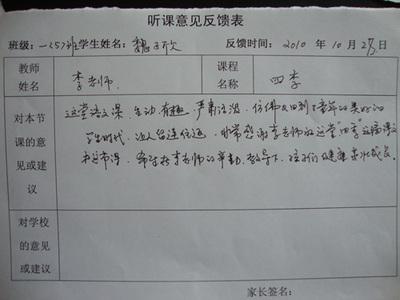 听课意见反馈表
班级:一<357>班学生姓名:魏 欣 反馈时间:2010年10月27日
教师姓名 李老师 课程名称 四季
对本节课的意见或建议 这堂语文课 生动有趣,严肃活泼,仿佛又回到了童年的美好的
时代,让人留连 非常感谢李老师 这堂“四季”这篇课文
李老师的辛勤教导下,孩子们健康茁壮成长。
对学校的意见或建议
家长签名: